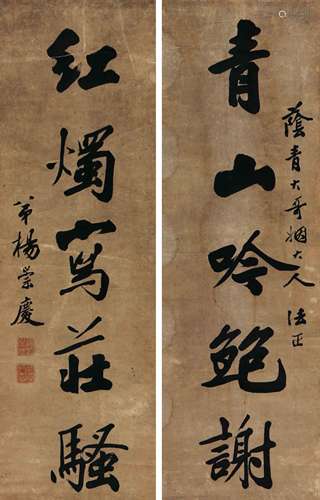 蔭青大哥姻大人 法正
青山吟鮑謝
紅燭寫莊騷
弟楊崇慶